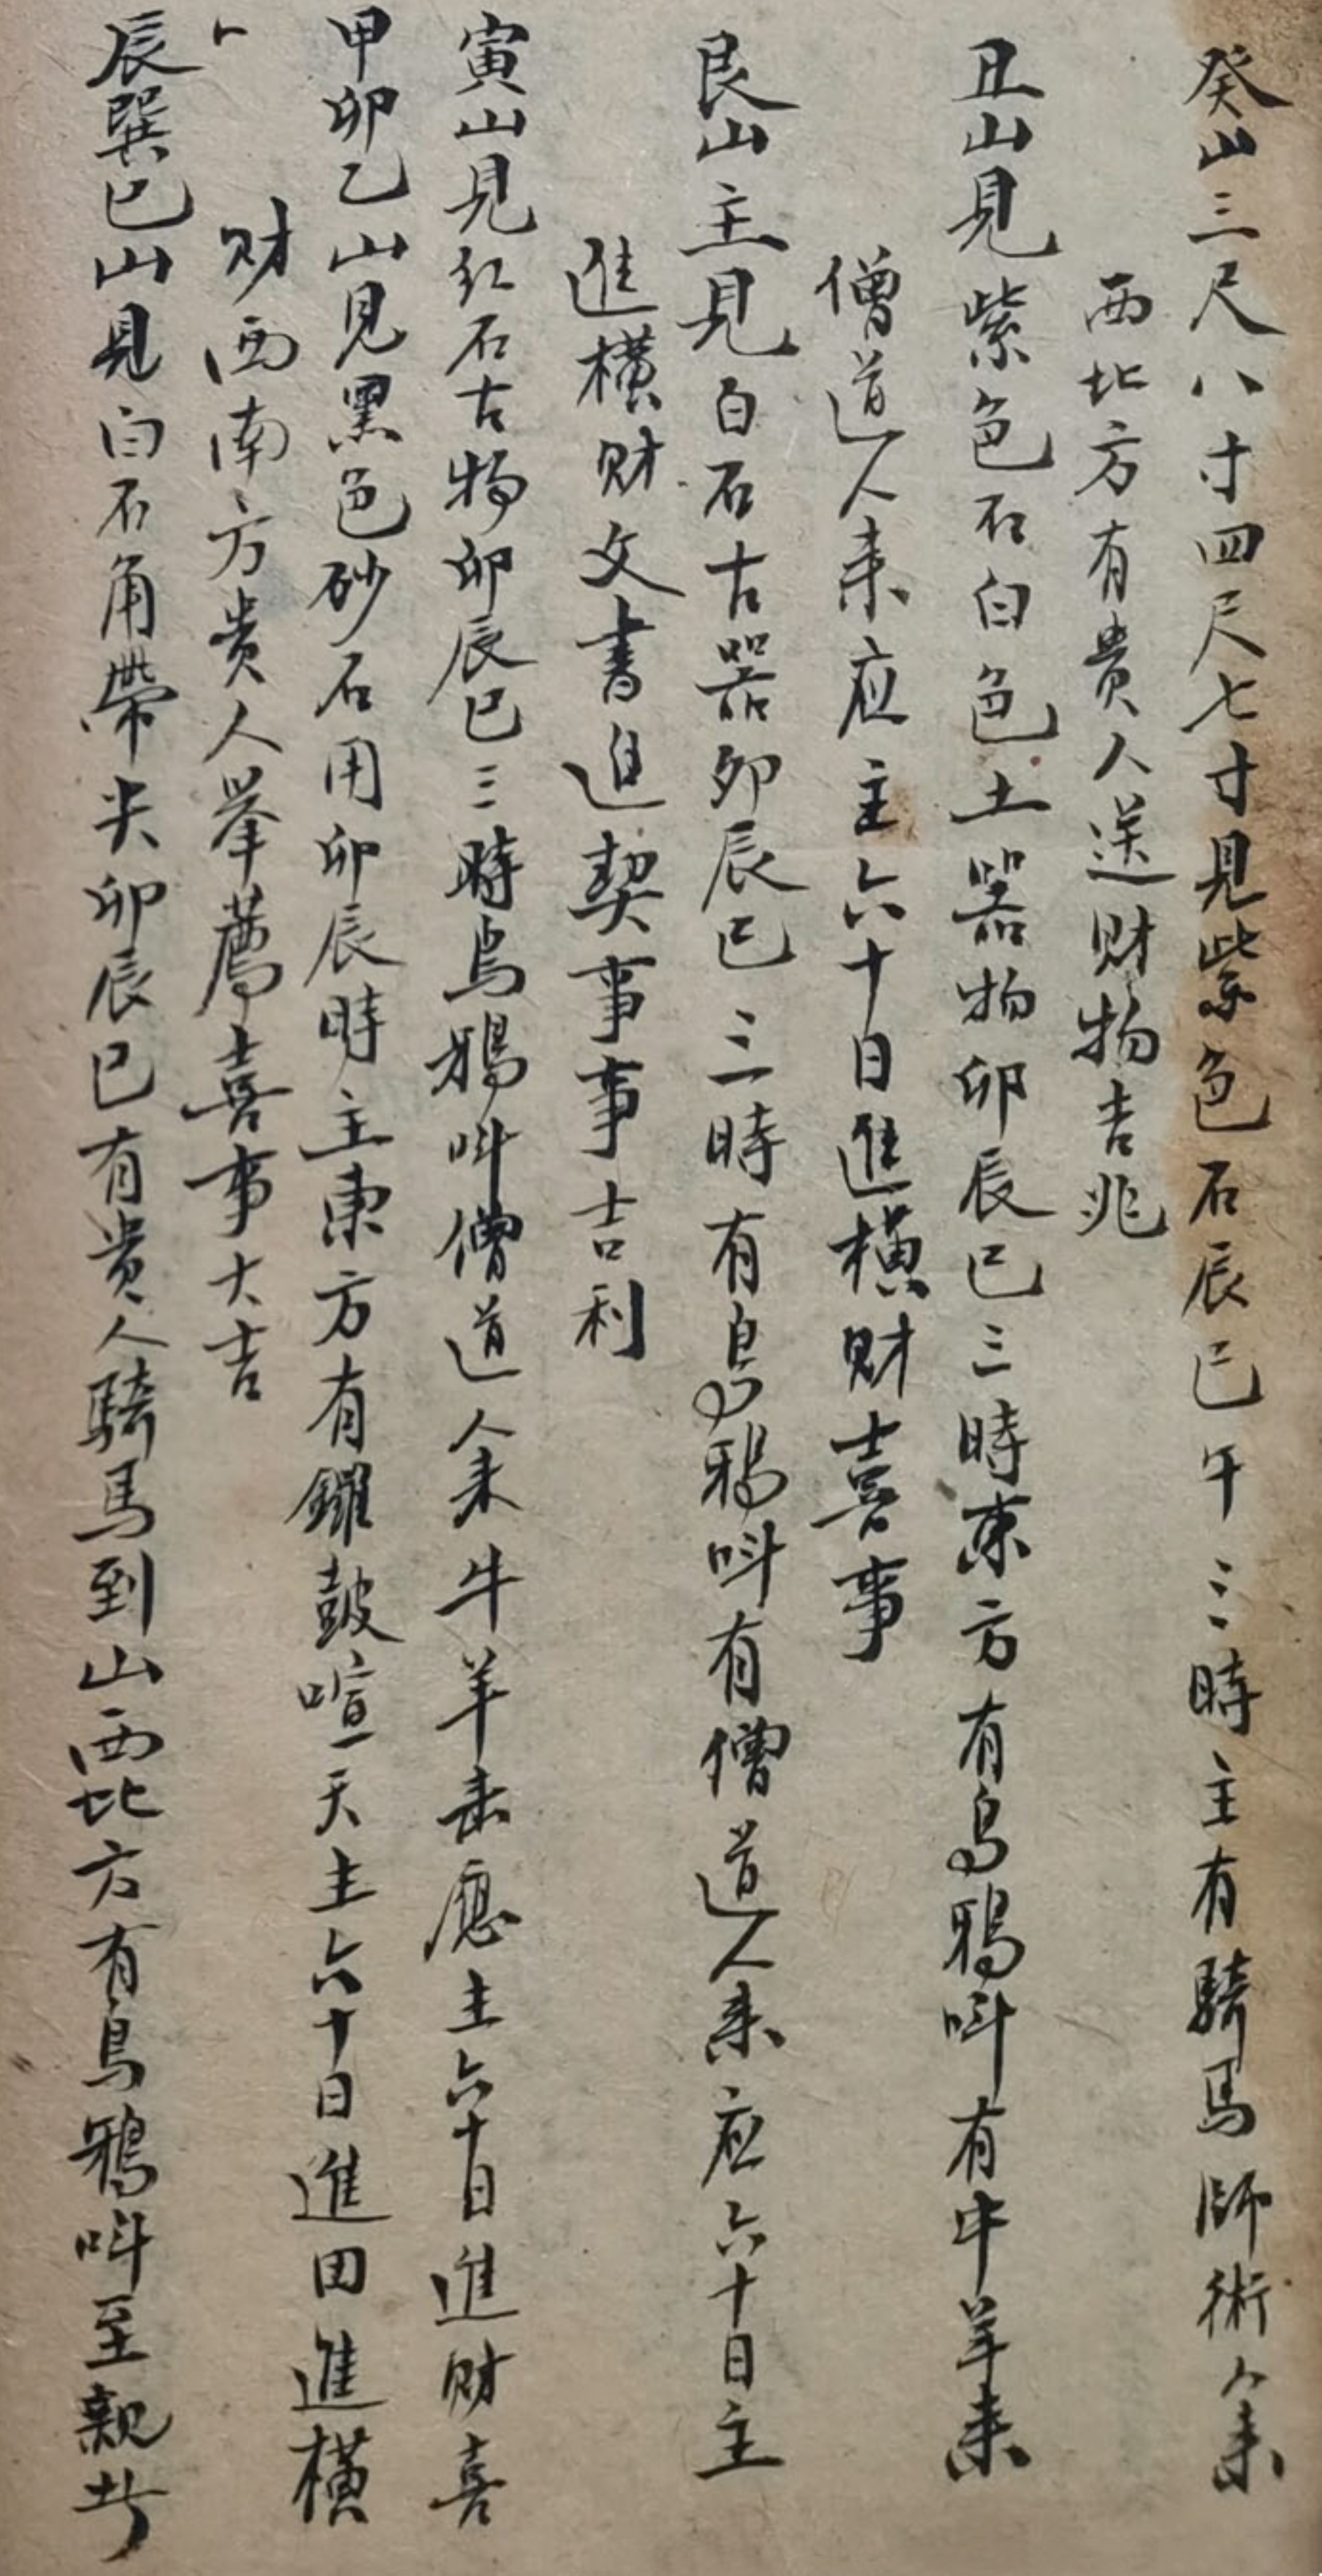 癸山三尺八寸四尺七寸見紫色石辰巳午三時主有騎馬師術人来
西北方有貴人送财物吉兆
丑山見紫色石白色土器物卯辰巳三時東方有烏鴉呌有牛羊来
僧道人来应主六十日進横财喜事
艮山主見白石古器卯辰巳三時有烏鴉呌有僧道人来应六十日主
進横财文書進契事事吉利
寅山見紅石古物卯辰巳三時烏鴉呌僧道人来牛羊来應主六十日進财喜
甲卯乙山見黑色砂石用卯辰時主東方有鑼鼓喧天主六十日進田進横
财西南方貴人举薦喜事大吉
辰巽巳山見白石角帶尖卯辰巳有貴人騎馬到山西北方有烏鴉呌至親